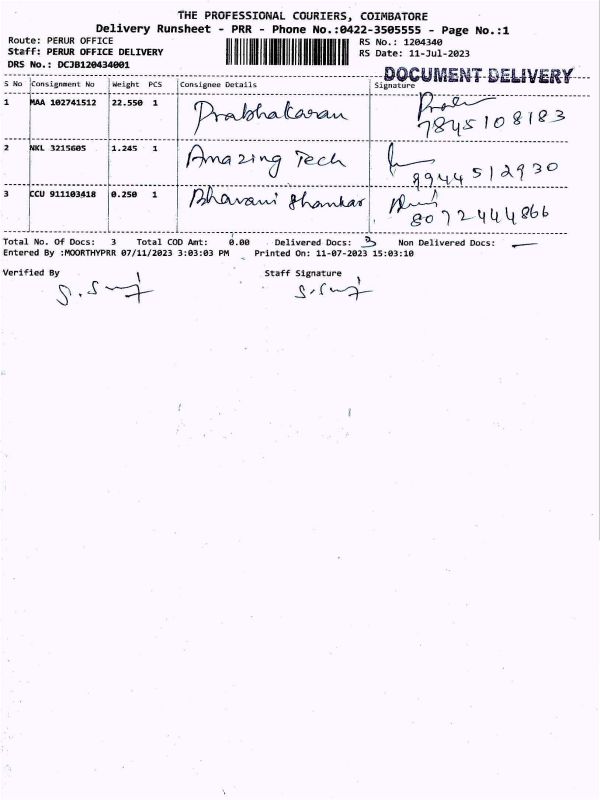 THE PROFESSIONAL COURIERS, COIMBATORE
Delivery Runsheet - PRR - Phone No.:0422-3505555 - Page No.:1
Route: PERUR OFFICE RS No.: 1204340
Staff: PERUR OFFICE DELIVERY RS Date: 11-Jul-2023
DRS No.: DCJB120434001
DOCUMENT DELIVERY
S No Consignment No Weight PCS Consignee Details Signature
1 MAA 102741512 22.550 1 Prabhakaran
7845108183
2 NKL 3215605 1.245 1 Amazing Tech
9944512930
3 CCU 911103418 0.250 1 Bhavani Shankar
8072444866
Total No. Of Docs: 3 Total COD Amt: 0.00 Delivered Docs: 3 Non Delivered Docs: —
Entered By :MOORTHYPRR 07/11/2023 3:03:03 PM Printed On: 11-07-2023 15:03:10
Verified By Staff Signature